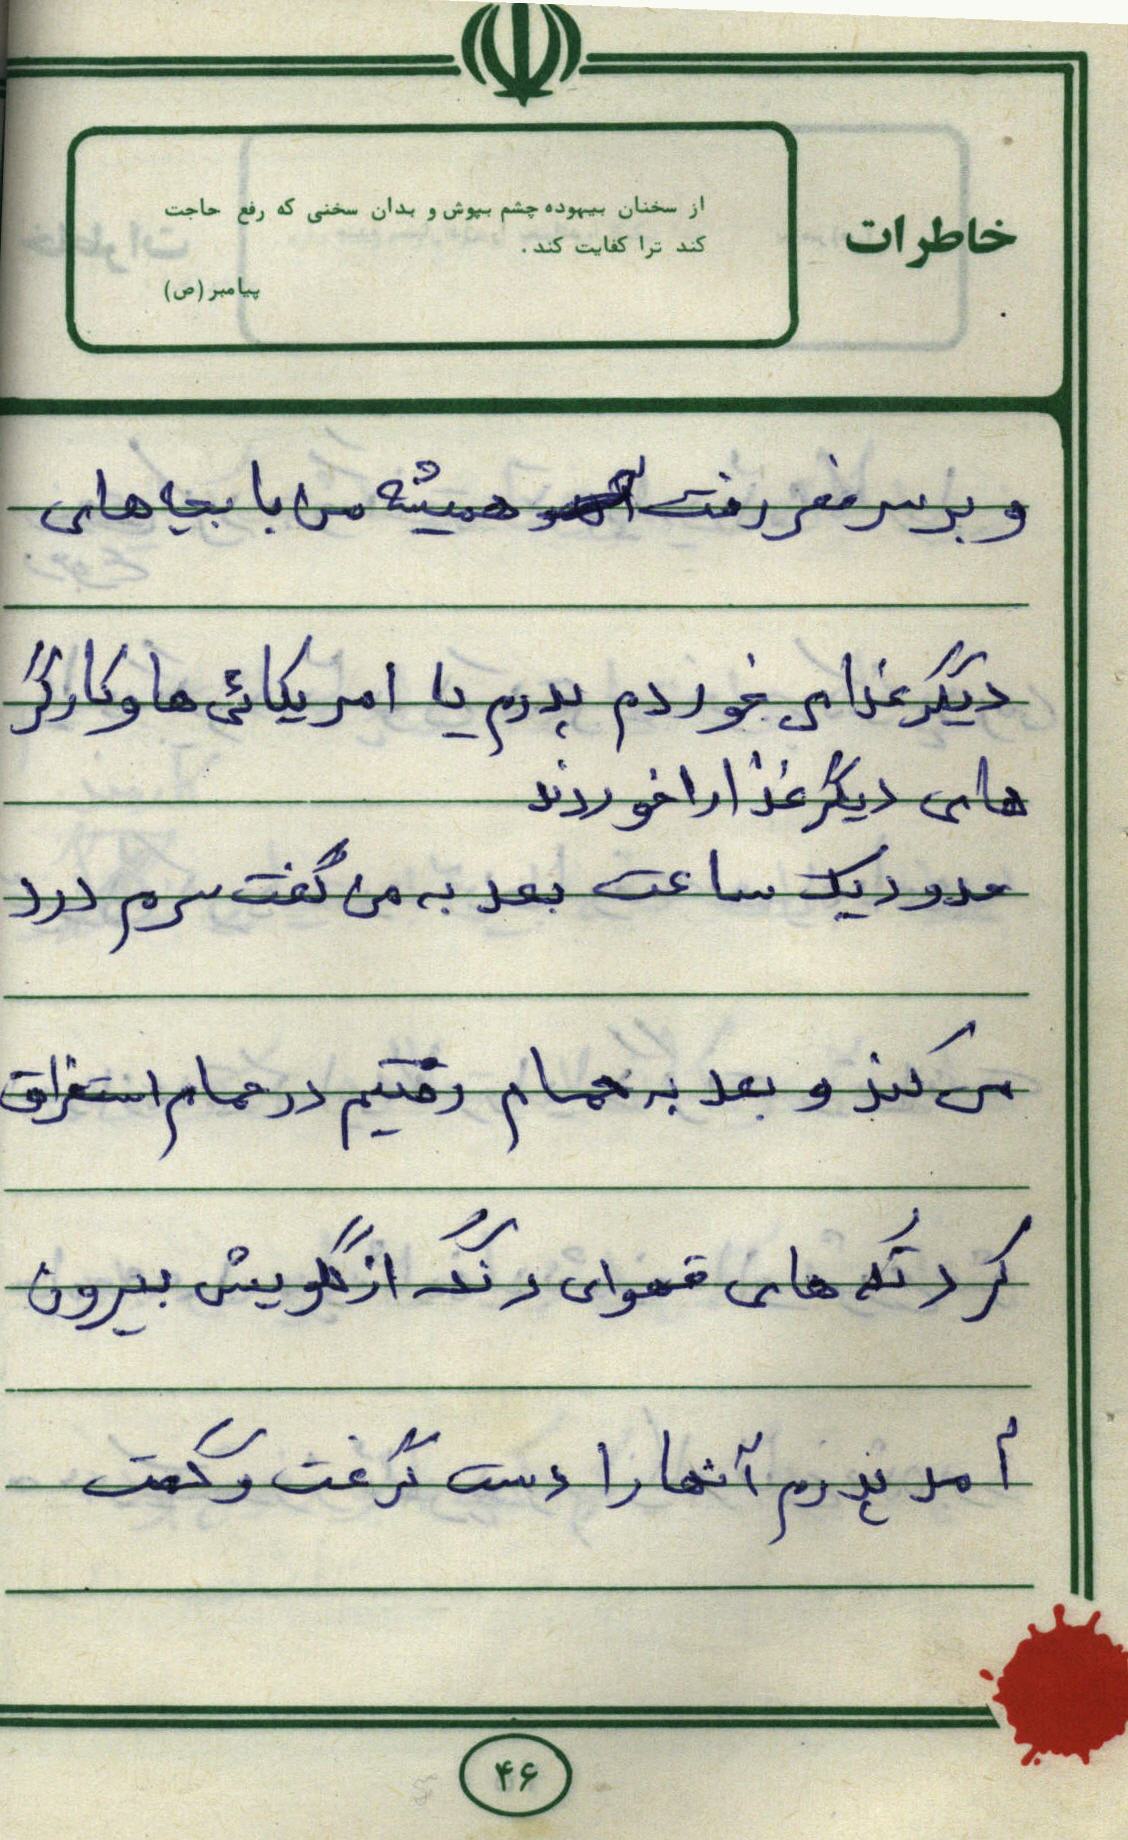 خاطرات
از سخنان بیهوده چشم بپوش و بدان سخنی که رفع حاجت
کند ترا کفایت کند .
پیامبر (ص)
و بر سر رفت همیشه من با بچه های
دیگر غذا می خوردم پدرم با امریکائی ها و کارگر
های دیگر غذا را خوردند
حدود یک ساعت بعد به من گفت سرم درد
می کند و بعد به حمام رفتیم در حمام استفراق
کرد تکه های قهوای رنگ از گلویش بیرون
آمد پدرم آنها را دست گرفت و گفت
۴۶